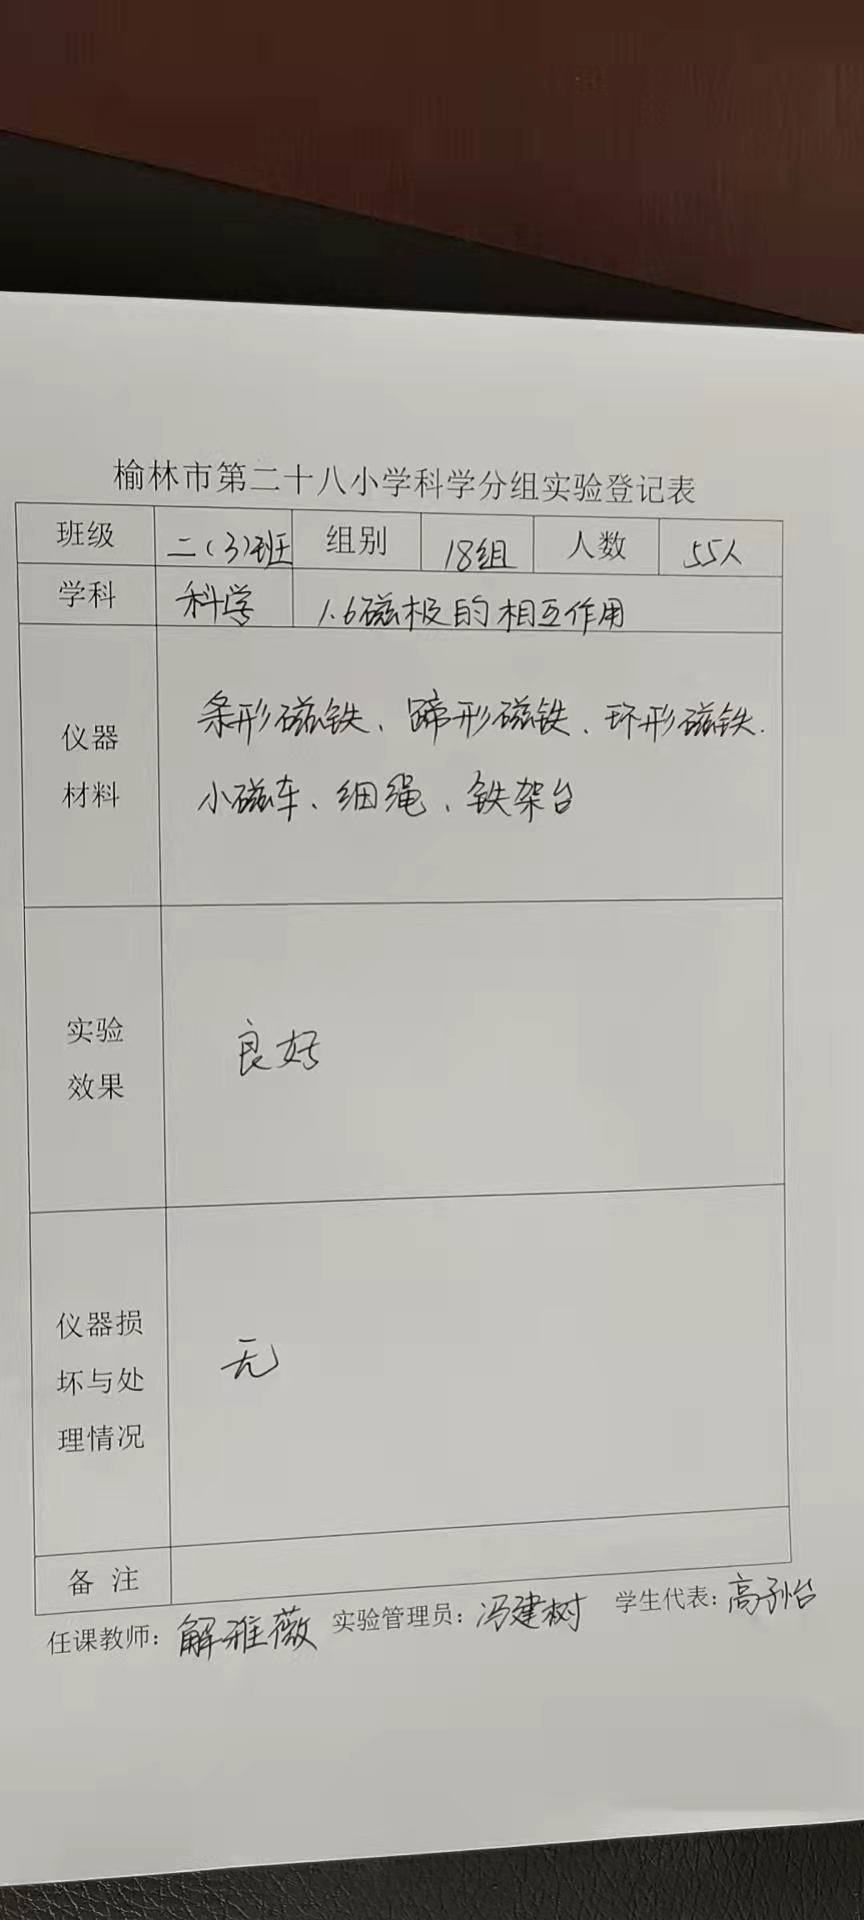 榆林市第二十八小学科学分组实验登记表
班级 二(3)班 组别 18组 人数 55人
学科 科学 1.6磁极的相互作用
仪器
材料
条形磁铁、蹄形磁铁、环形磁铁.
小磁车、细绳、铁架台
实验
效果
良好
仪器损
坏与处
理情况
无
备 注
任课教师: 解雅薇 实验管理员: 冯建树 学生代表: 高子怡